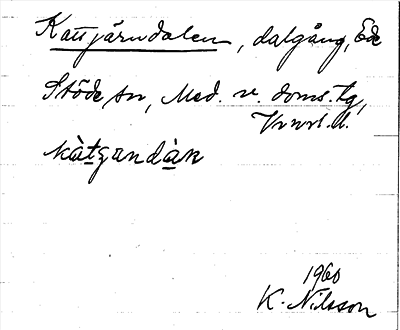 Kattjärndalen, dalgång, Ede
Stöde sn, Med. v. doms. tg,
Vrnrl. d.
kàtgandàn
1960
K. Nilsson